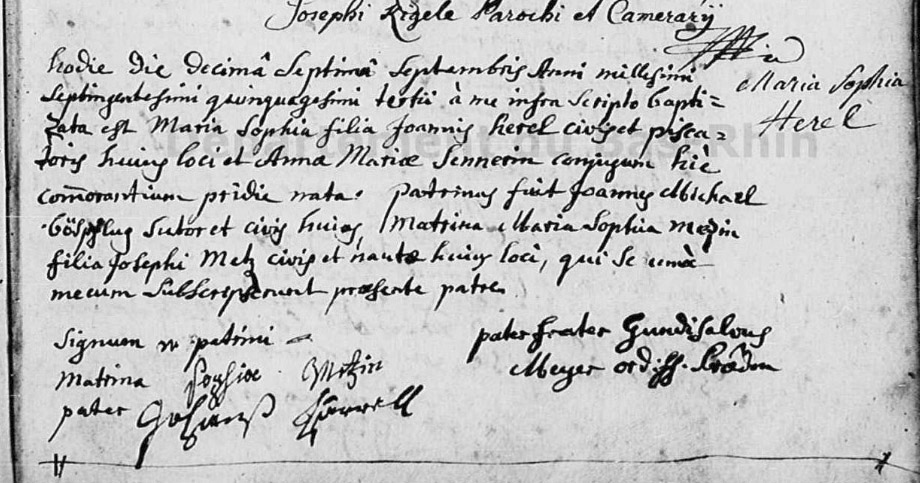 Josephi Rigele Parochi et Camerarÿ
Maria Sophia
Herel
hodie die decimâ Septimâ Septembris Anni millesimi
Septingentesimi quinquagesimi tertii à me infra scripto bapti=
zata est Maria Sophia filia Joannis herel civis et pisca=
toris huius loci et Annæ Mariæ Sennerin conjugum hic
com̄orantium pridie nata. patrinus fuit Joannes Michael
sutor et civis huius Matrina Maria Sophia mezin
filia Josephi Metz civis et nautæ huius loci, qui se unà
mecum subscripserunt præsente patre
Signum patrini
pater frater Gundisalvus
Matrina Sophia Metzin
Meyer ord. ff.
pater
Département du Bas-Rhin